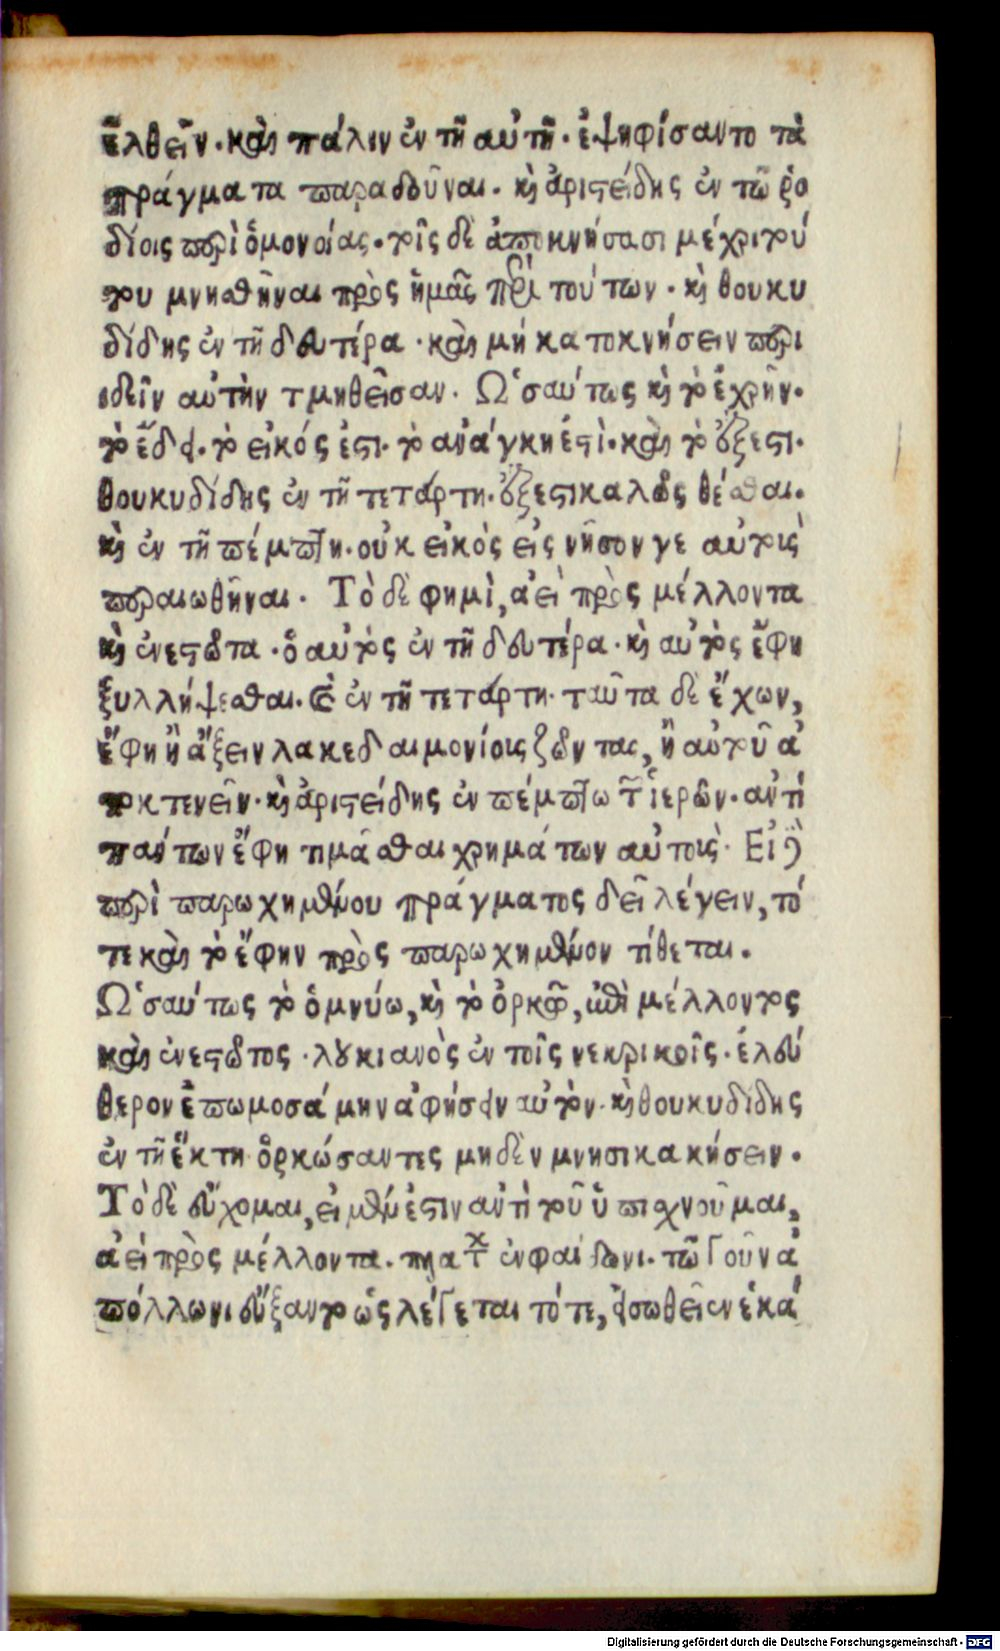 ἐλθεῖν. καὶ πάλιν ἐν τῇ αὐτῇ. ἐψηφίσαντο τὰ
πράγματα παραδοῦναι. κὶ ἀριστείδης ἐν τῶ ῥο
δίοις περὶ ὁμονοίας. τοῖς δὲ ἀποκνήσασι μέχρι τού
του μνησθῆναι πρὸς ἡμᾶς περὶ τούτων. κὶ θουκυ
δίδης ἐν τῇ δευτέρα. καὶ μή κατοκνήσειν περι
ιδεῖν αὐτὴν τμηθεῖσαν. Ὡσαύτως κὶ τὸ ἐχρῆν.
τὸ ἔδει. τὸ εἰκός ἐστι. τὸ ἀνάγκη ἐστὶ. καὶ τὸ οὔξεστι.
θουκυδίδης ἐν τῇ τετάρτη. οὔξεστι καλῶς θέσθαι.
κὶ ἐν τῇ πέμπτη. οὐκ εἰκὸς εἰς νῆσον γε αὐτοὶς
περαιωθῆναι. Τὸ δὲ φημὶ, ἀεὶ πρὸς μέλλοντα
κὶ ἐνεστῶτα. ὁ αὐτὸς ἐν τῇ δευτέρα. κὶ αὐτὸς ἔφη
ξυλλήψεσθαι. καὶ ἐν τῇ τετάρτη. ταῦτα δὲ ἔχων,
ἔφη ἢ ἄξειν λακεδαιμονίοις ζῶντας, ἢ αὐτοῦ ἀ
ποκτενεῖν. κὶ ἀριστείδης ἐν πέμπτω τῶν ἱερῶν. ἀντὶ
πάντων ἔφη τιμᾶσθαι χρημάτων αὐτοῖς. Εἰ δὲ
περὶ παρωχημένου πράγματος δεῖ λέγειν, τό
τε καὶ τὸ ἔφην πρὸς παρωχημένον τίθεται.
Ὡσαύτως τὸ ὀμνύω, κὶ τὸ ὁρκῶ, ἐπὶ μέλλοντος
καὶ ἐνεστῶτος. λουκιανὸς ἐν τοῖς νεκρικοῖς. ἐλεύ
θερον ἐπωμοσάμην ἀφήσειν αὐτὸν. κὶ θουκυδίδης
ἐν τῇ ἕκτη ὁρκώσαντες μηδὲν μνησικακήσειν.
Τὸ δὲ εὔχομαι, εἰ μέν ἐστιν ἀντὶ τοῦ ὑπισχνοῦμαι,
ἀεὶ πρὸς μέλλοντα. πλάτων ἐν φαίδωνι. τῶ γοῦν ἀ
πόλλωνι εὔξαντο ὡς λέγεται τότε, εἰ σωθεῖεν ἑκά